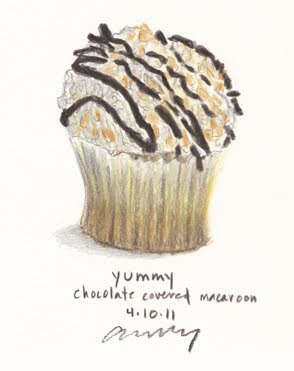 yummy
chocolate covered macaroon
4.10.11